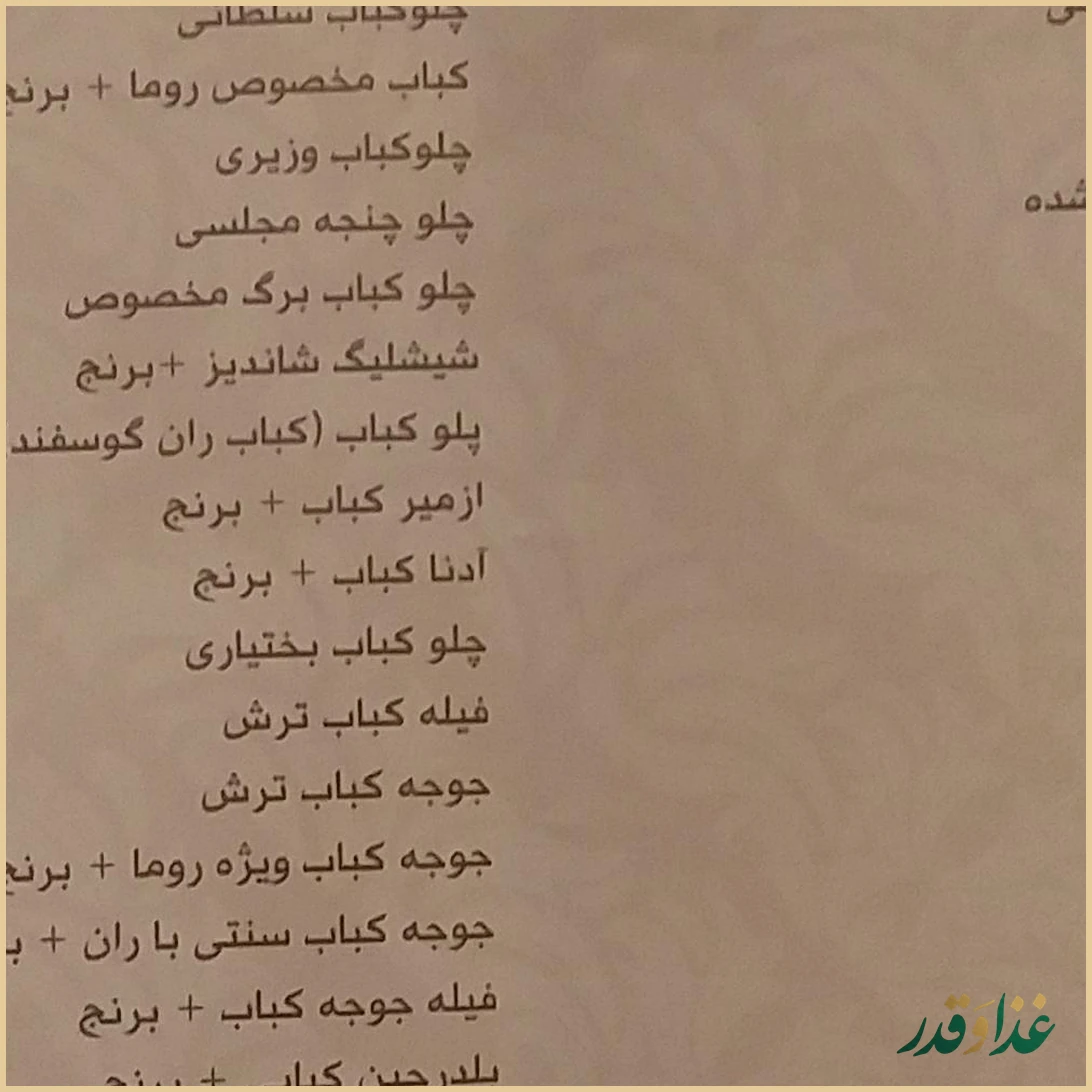 چلوکباب سلطانی
کباب مخصوص روما + برنج
چلوکباب وزیری
چلو چنجه مجلسی
شده
چلو کباب برگ مخصوص
شیشلیگ شاندیز +برنج
پلو کباب (کباب ران گوسفند
ازمیر کباب + برنج
آدنا کباب + برنج
چلو کباب بختیاری
فیله کباب ترش
جوجه کباب ترش
جوجه کباب ویژه روما + برنج
جوجه کباب سنتی با ران +
فیله جوجه کباب + برنج
بلدرچین کباب + برنج
غذا و قدر